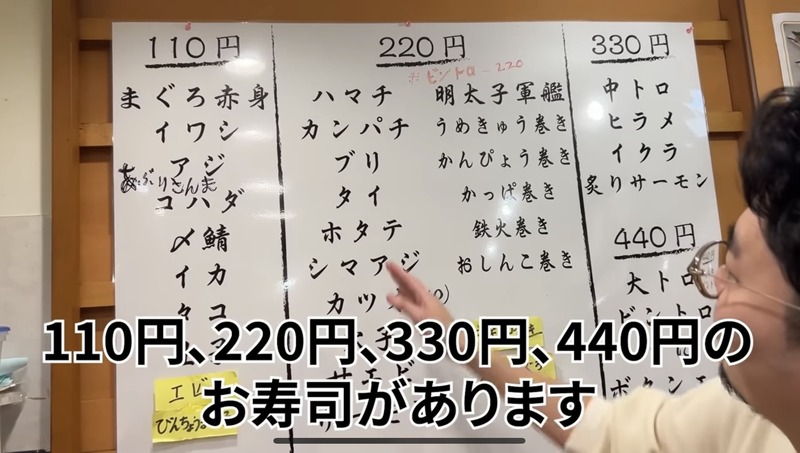 110円
まぐろ赤身
イワシ
アジ
あぶりさんま
コハダ
〆鯖
イカ
タコ
エビ
220円
※ビントロ 220
ハマチ
カンパチ
ブリ
タイ
ホタテ
シマアジ
明太子軍艦
うめきゅう巻き
かんぴょう巻き
かっぱ巻き
鉄火巻き
おしんこ巻き
330円
中トロ
ヒラメ
イクラ
炙りサーモン
440円
大トロ
110円、220円、330円、440円の
お寿司があります